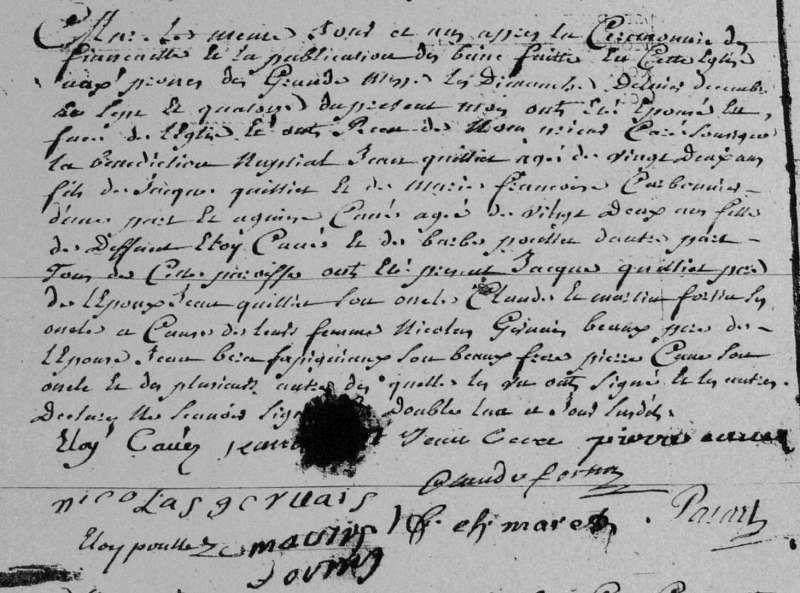 Et Mar le meme Jour et an apres la Ceremonie de
fiancaille et la publication des banc faitte En Cette Eglise
aux prones des Grande Messe les Dimanche Dernier decembre
le sept et quatorze du present mois ont Eté Epousé En
face de l'Eglise Et ont Receu de Nous prieur Curé Soussigné
la benediction Nuptial Jean quilliet agée de vingt Deux ans
fils de Jacque quilliet Et de Marie francoise Carbonnier
d'une part Et agnisse Cauée agée de vingt Deux ans fille
de Deffunt Eloy Cauée Et de barbe poulliet d'autre part
Tous de Cette paroisse ont Eté present Jacque quilliet pere
de l'Epoux Jean quilliet son oncle Claude Et martin fortin ses
oncle a Cause de leurs femme Nicolas Gervais beaux pere de
l'Epouse Jean beaux frere pierre Caue son
oncle Et de plusieurs autre des quelle les un ont Signé Et les autres
Declarez Ne scavoir Sign Double lue et Jour susdit
Eloy Cauéz Jean Jean pierre cauee
Claude fortin
nicolas gervais
Eloy poulliez martin
fortin